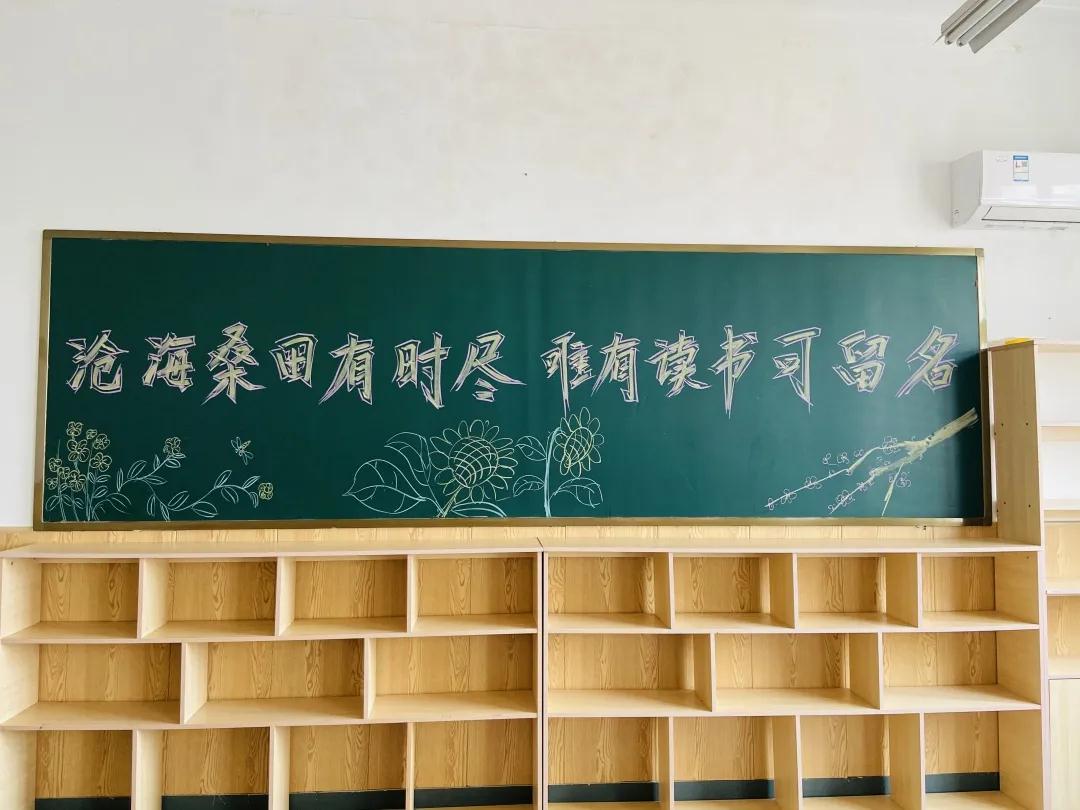 沧海桑田有时尽 唯有读书可留名